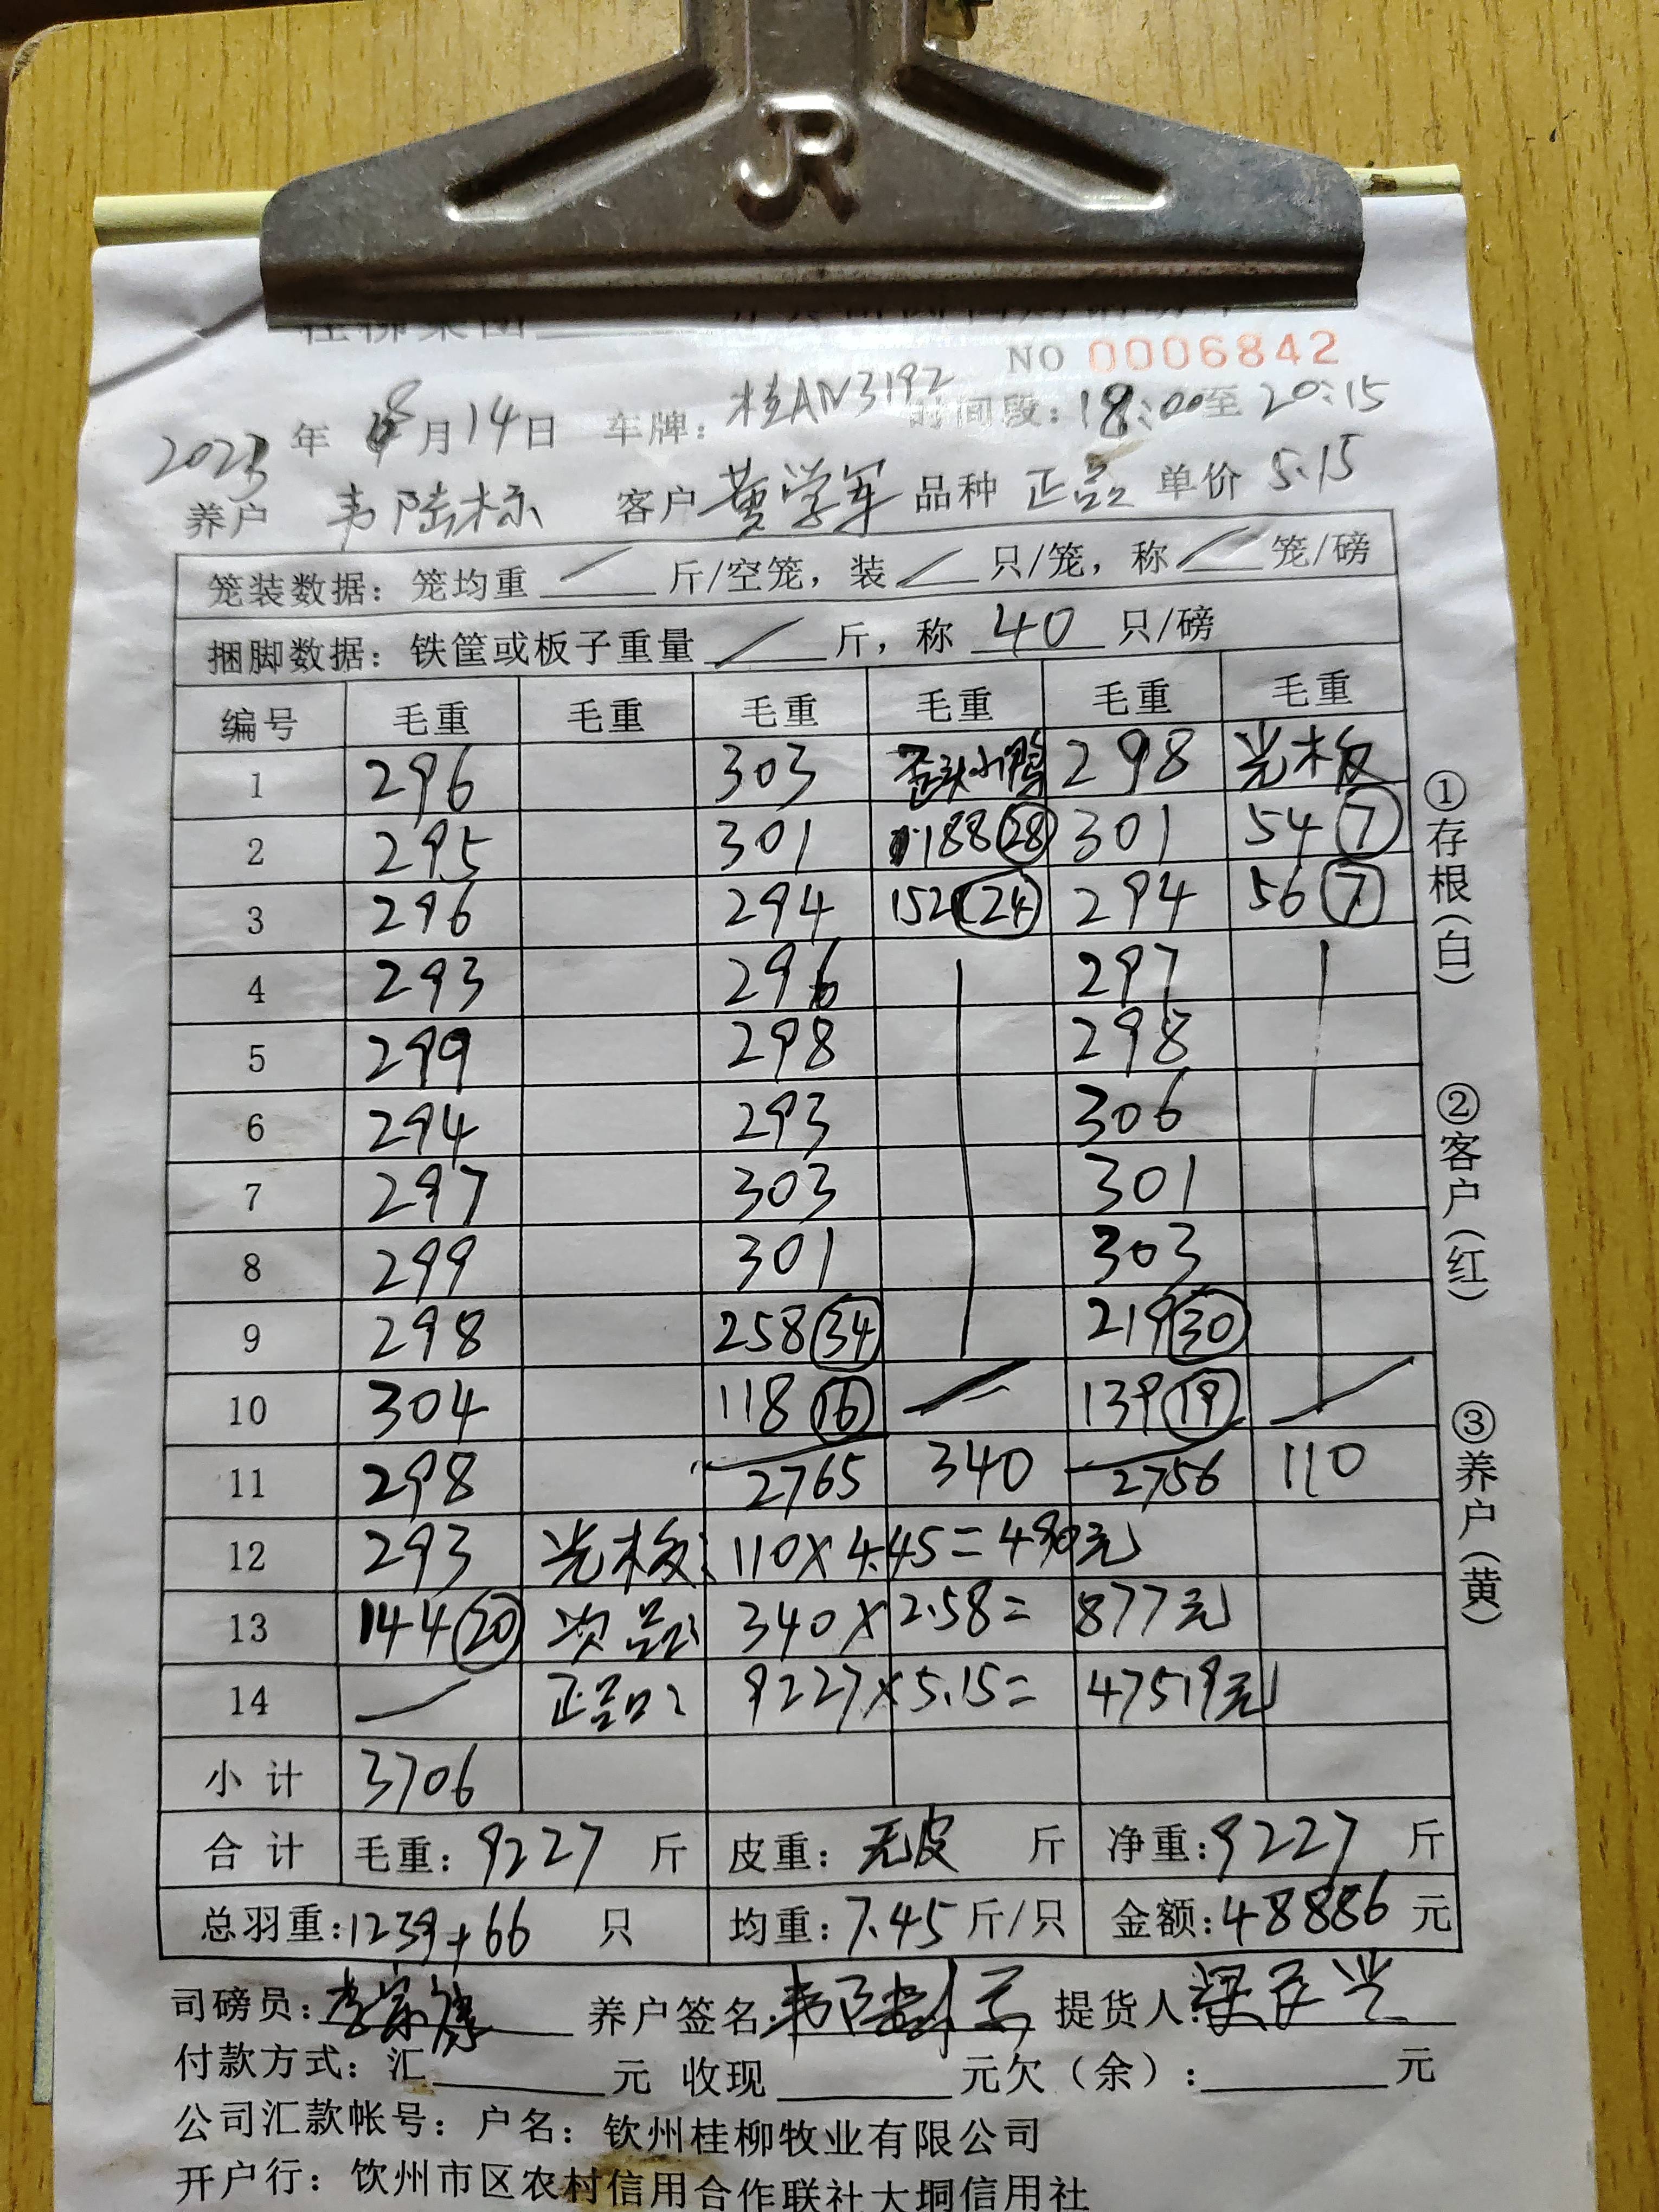 JR
桂柳集团
NO 0006842
2023年 8月14日 车牌：桂AN3192 时间段：18:00至20:15
养户 韦陆标 客户 黄学军 品种 正品 单价 5.15
笼装数据：笼均重 / 斤/空笼，装 / 只/笼，称 / 笼/磅
捆脚数据：铁筐或板子重量 / 斤，称 40 只/磅
编号 毛重 毛重 毛重 毛重 毛重 毛重
1 296 303 歪头小鸭 298 光板
2 295 301 188 28 301 54 7
3 296 294 152 24 294 56 7
4 293 296 297
5 299 298 298
6 294 293 306
7 297 303 301
8 299 301 303
9 298 258 34 219 30
10 304 118 16 139 19
11 298 2765 340 2756 110
12 293 光板：110×4.45=490元
13 144 20 次品：340×2.58=877元
14 — 正品：9227×5.15=47519元
小计 3706
合计 毛重：9227 斤 皮重：无皮 斤 净重：9227 斤
总羽重：1239+66 只 均重：7.45斤/只 金额：48886元
司磅员： 养户签名：韦陆标 提货人：
付款方式：汇 元 收现 元欠（余）： 元
公司汇款帐号：户名：钦州桂柳牧业有限公司
开户行：钦州市区农村信用合作联社大垌信用社
①存根（白）
②客户（红）
③养户（黄）